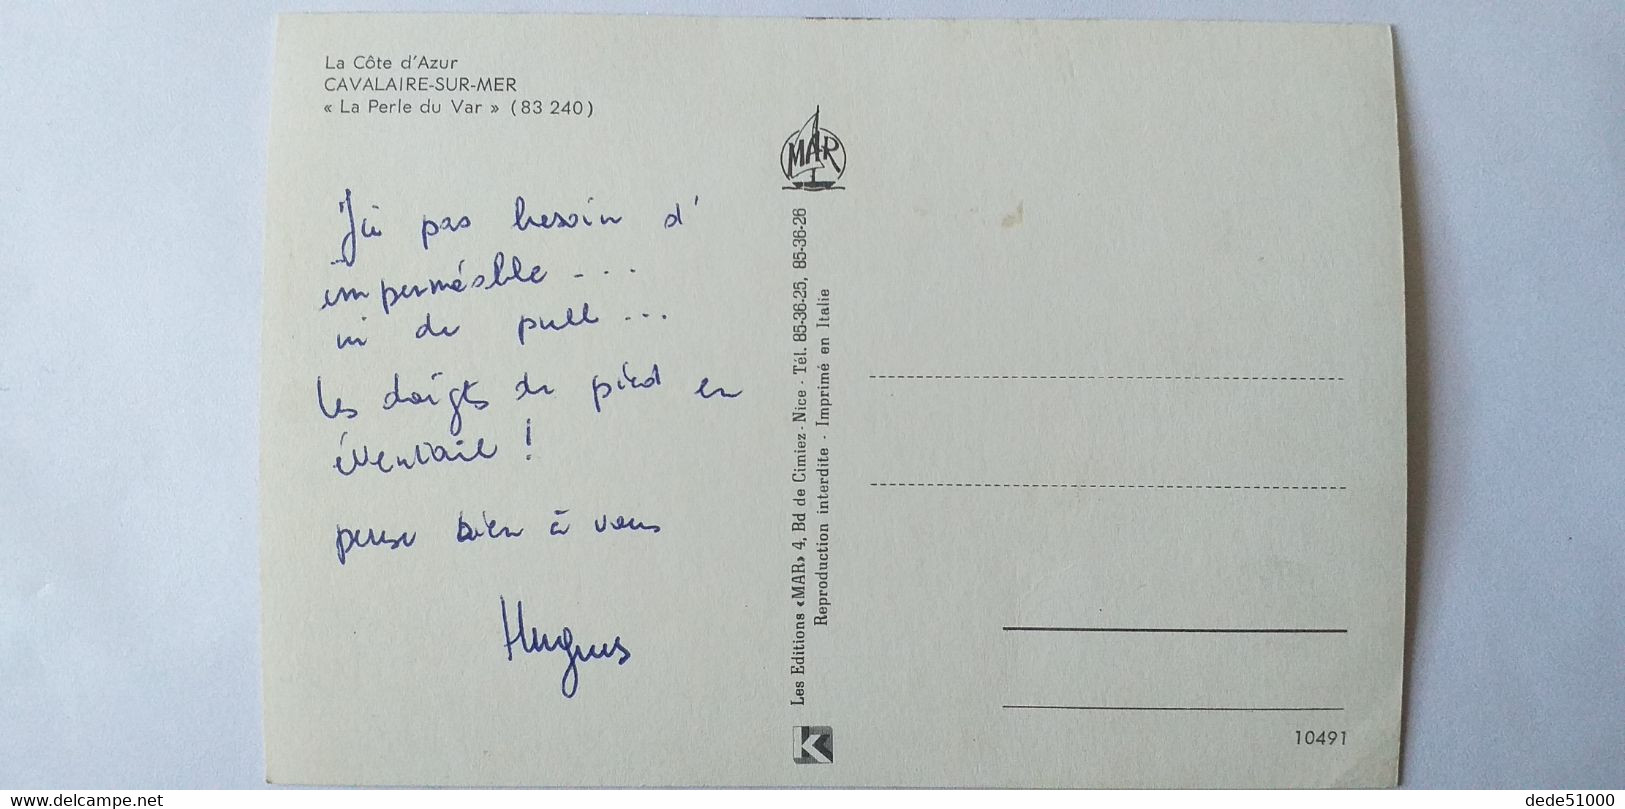 La Côte d'Azur
CAVALAIRE-SUR-MER
« La Perle du Var » (83 240)
J'ai pas besoin d'
imperméable ...
ni de pull ...
les doigts de pied en
éventail !
pense bien à vous
Hugues
MAR
Les Editions «MAR» 4, Bd de Cimiez - Nice - Tél. 85-36-25, 85-36-26
Reproduction interdite - Imprimé en Italie
K
10491
www.delcampe.net
dede51000